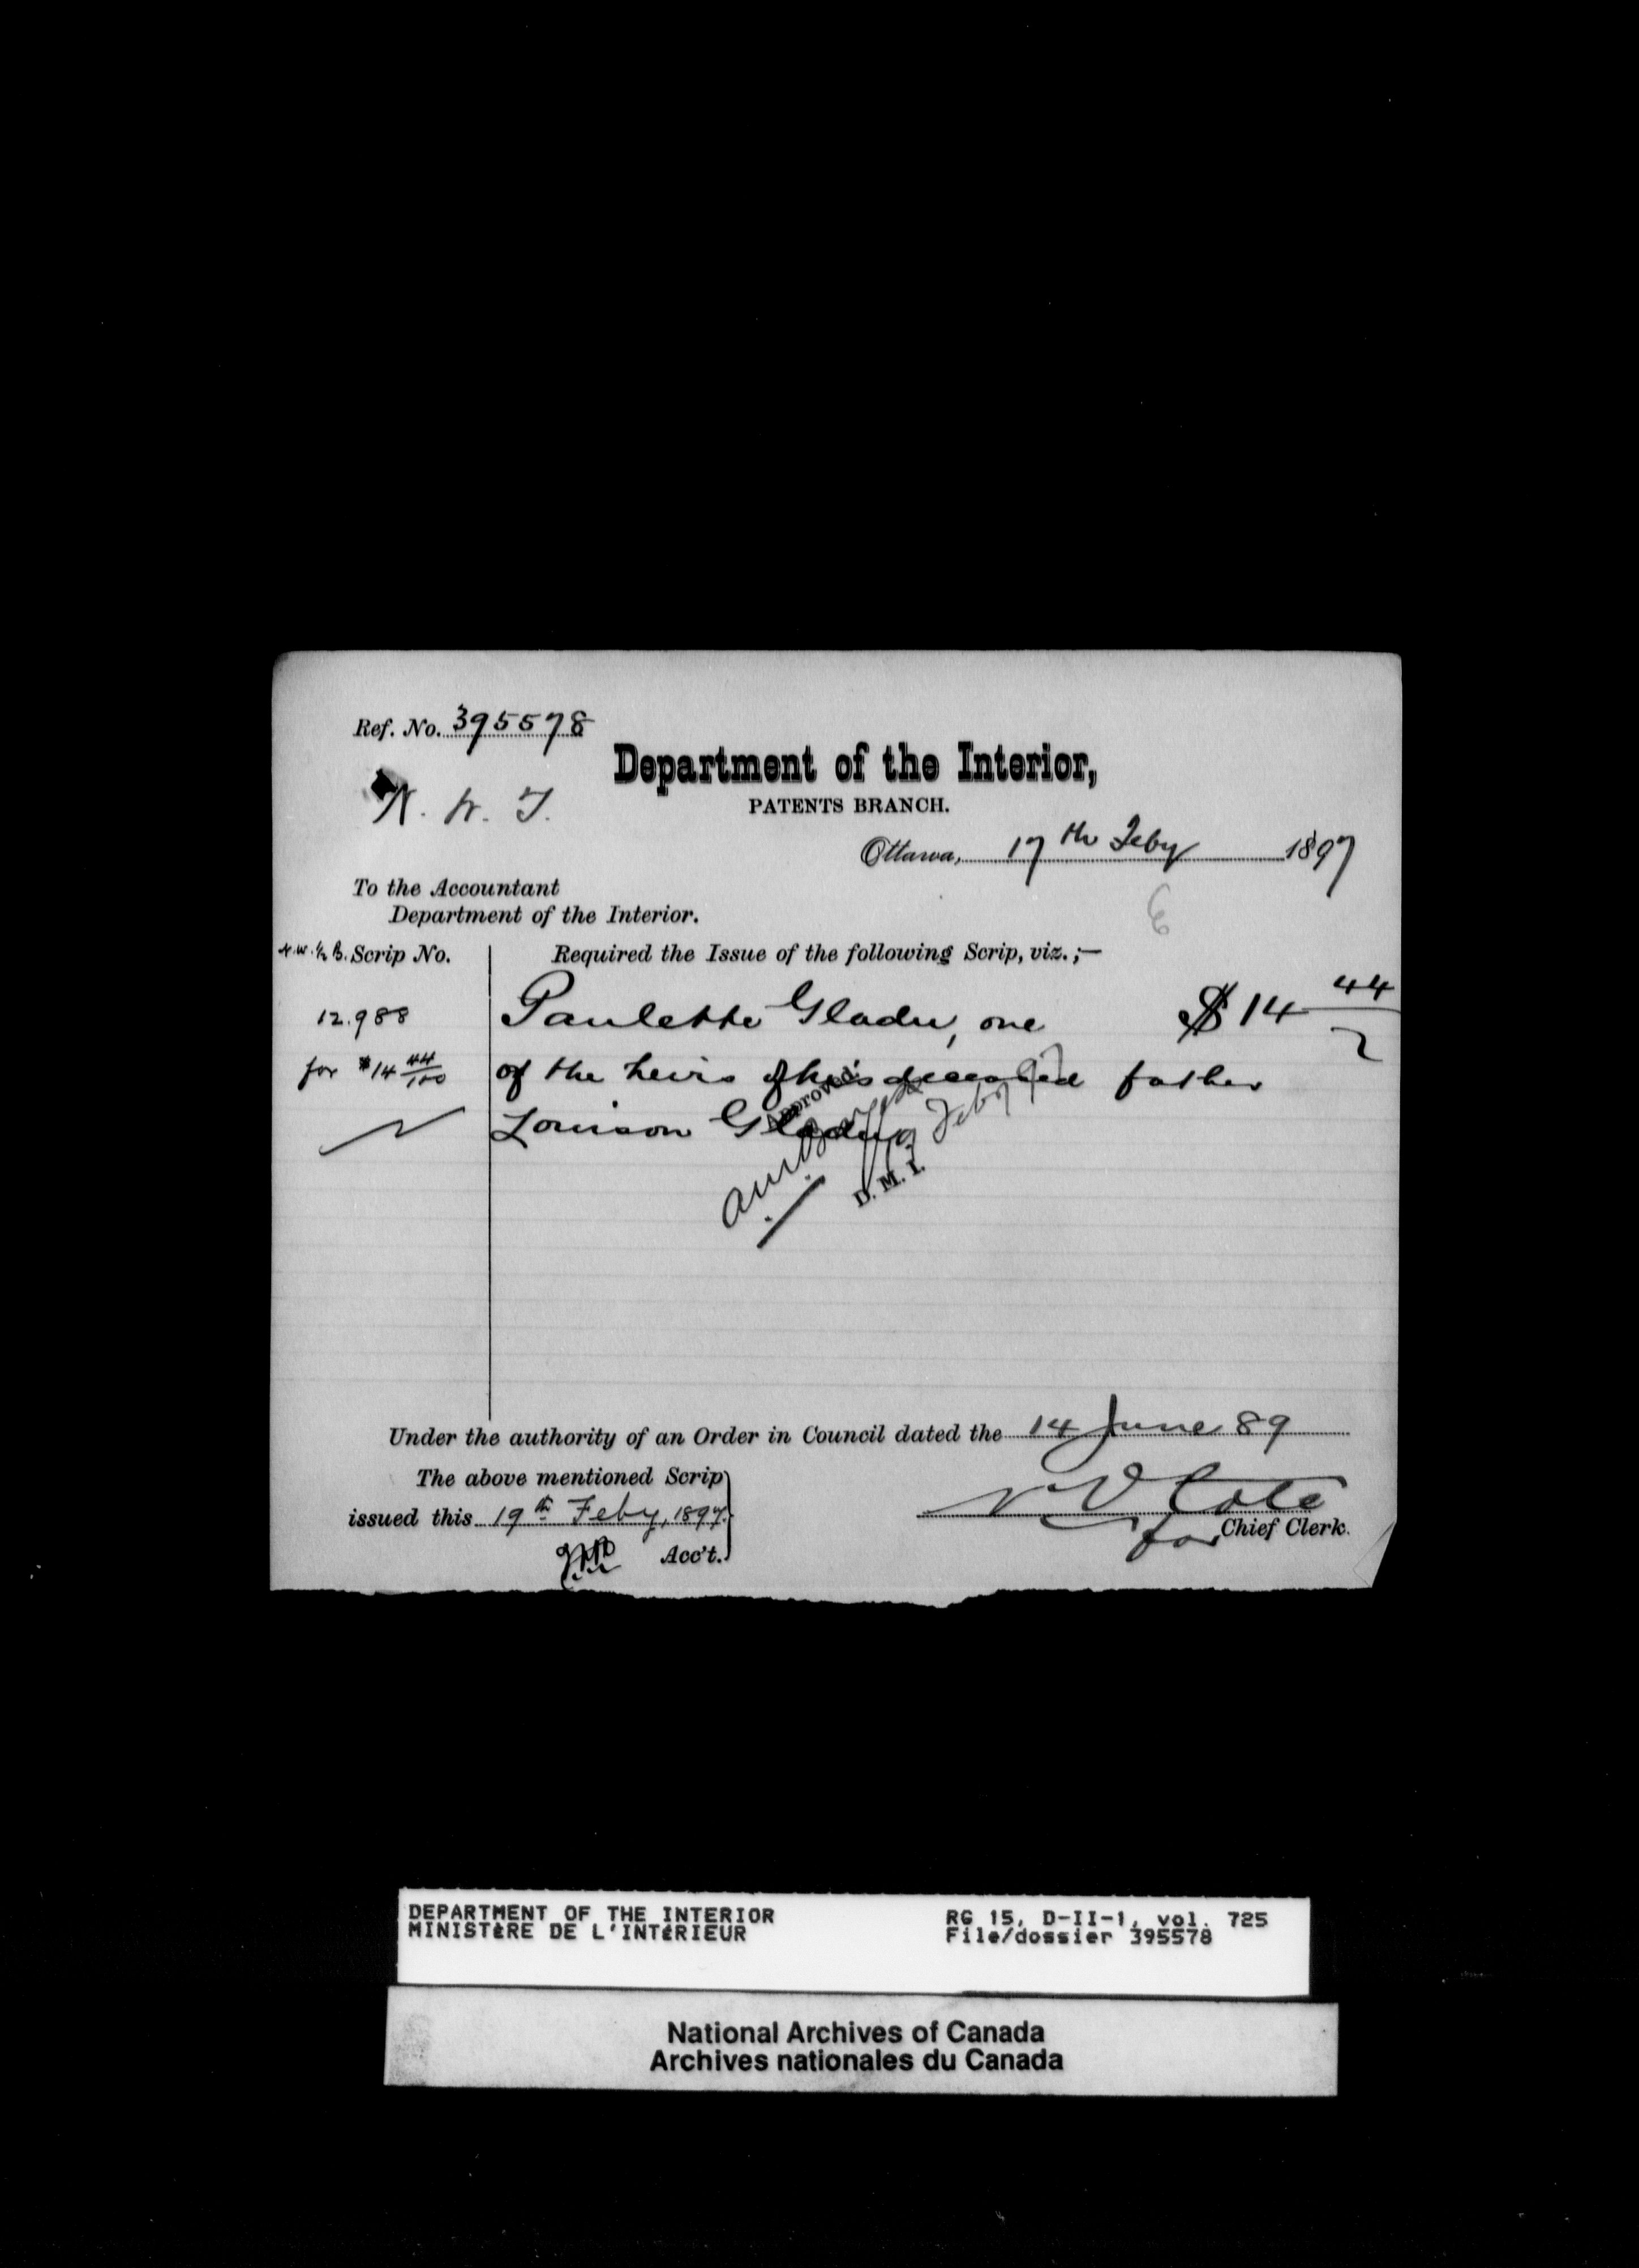 Ref. No. 395578
Department of the Interior,
N. W. T.
PATENTS BRANCH.
Ottawa, 17th Feby 1897
To the Accountant
Department of the Interior.
N.W. ½ B. Scrip No.
Required the Issue of the following Scrip, viz.;—
12.988
Paulette Gladu, one $14 44
for $14 44/100
of the heirs of his deceased father
Louison Gladu
Approved
Feby 97
D. M. I.
Under the authority of an Order in Council dated the 14 June 89
The above mentioned Scrip
issued this 19th Feby, 1897.
N O Coté
for Chief Clerk.
Acc't.
DEPARTMENT OF THE INTERIOR
MINISTÈRE DE L'INTÉRIEUR
RG 15, D-II-1, vol. 725
File/dossier 395578
National Archives of Canada
Archives nationales du Canada